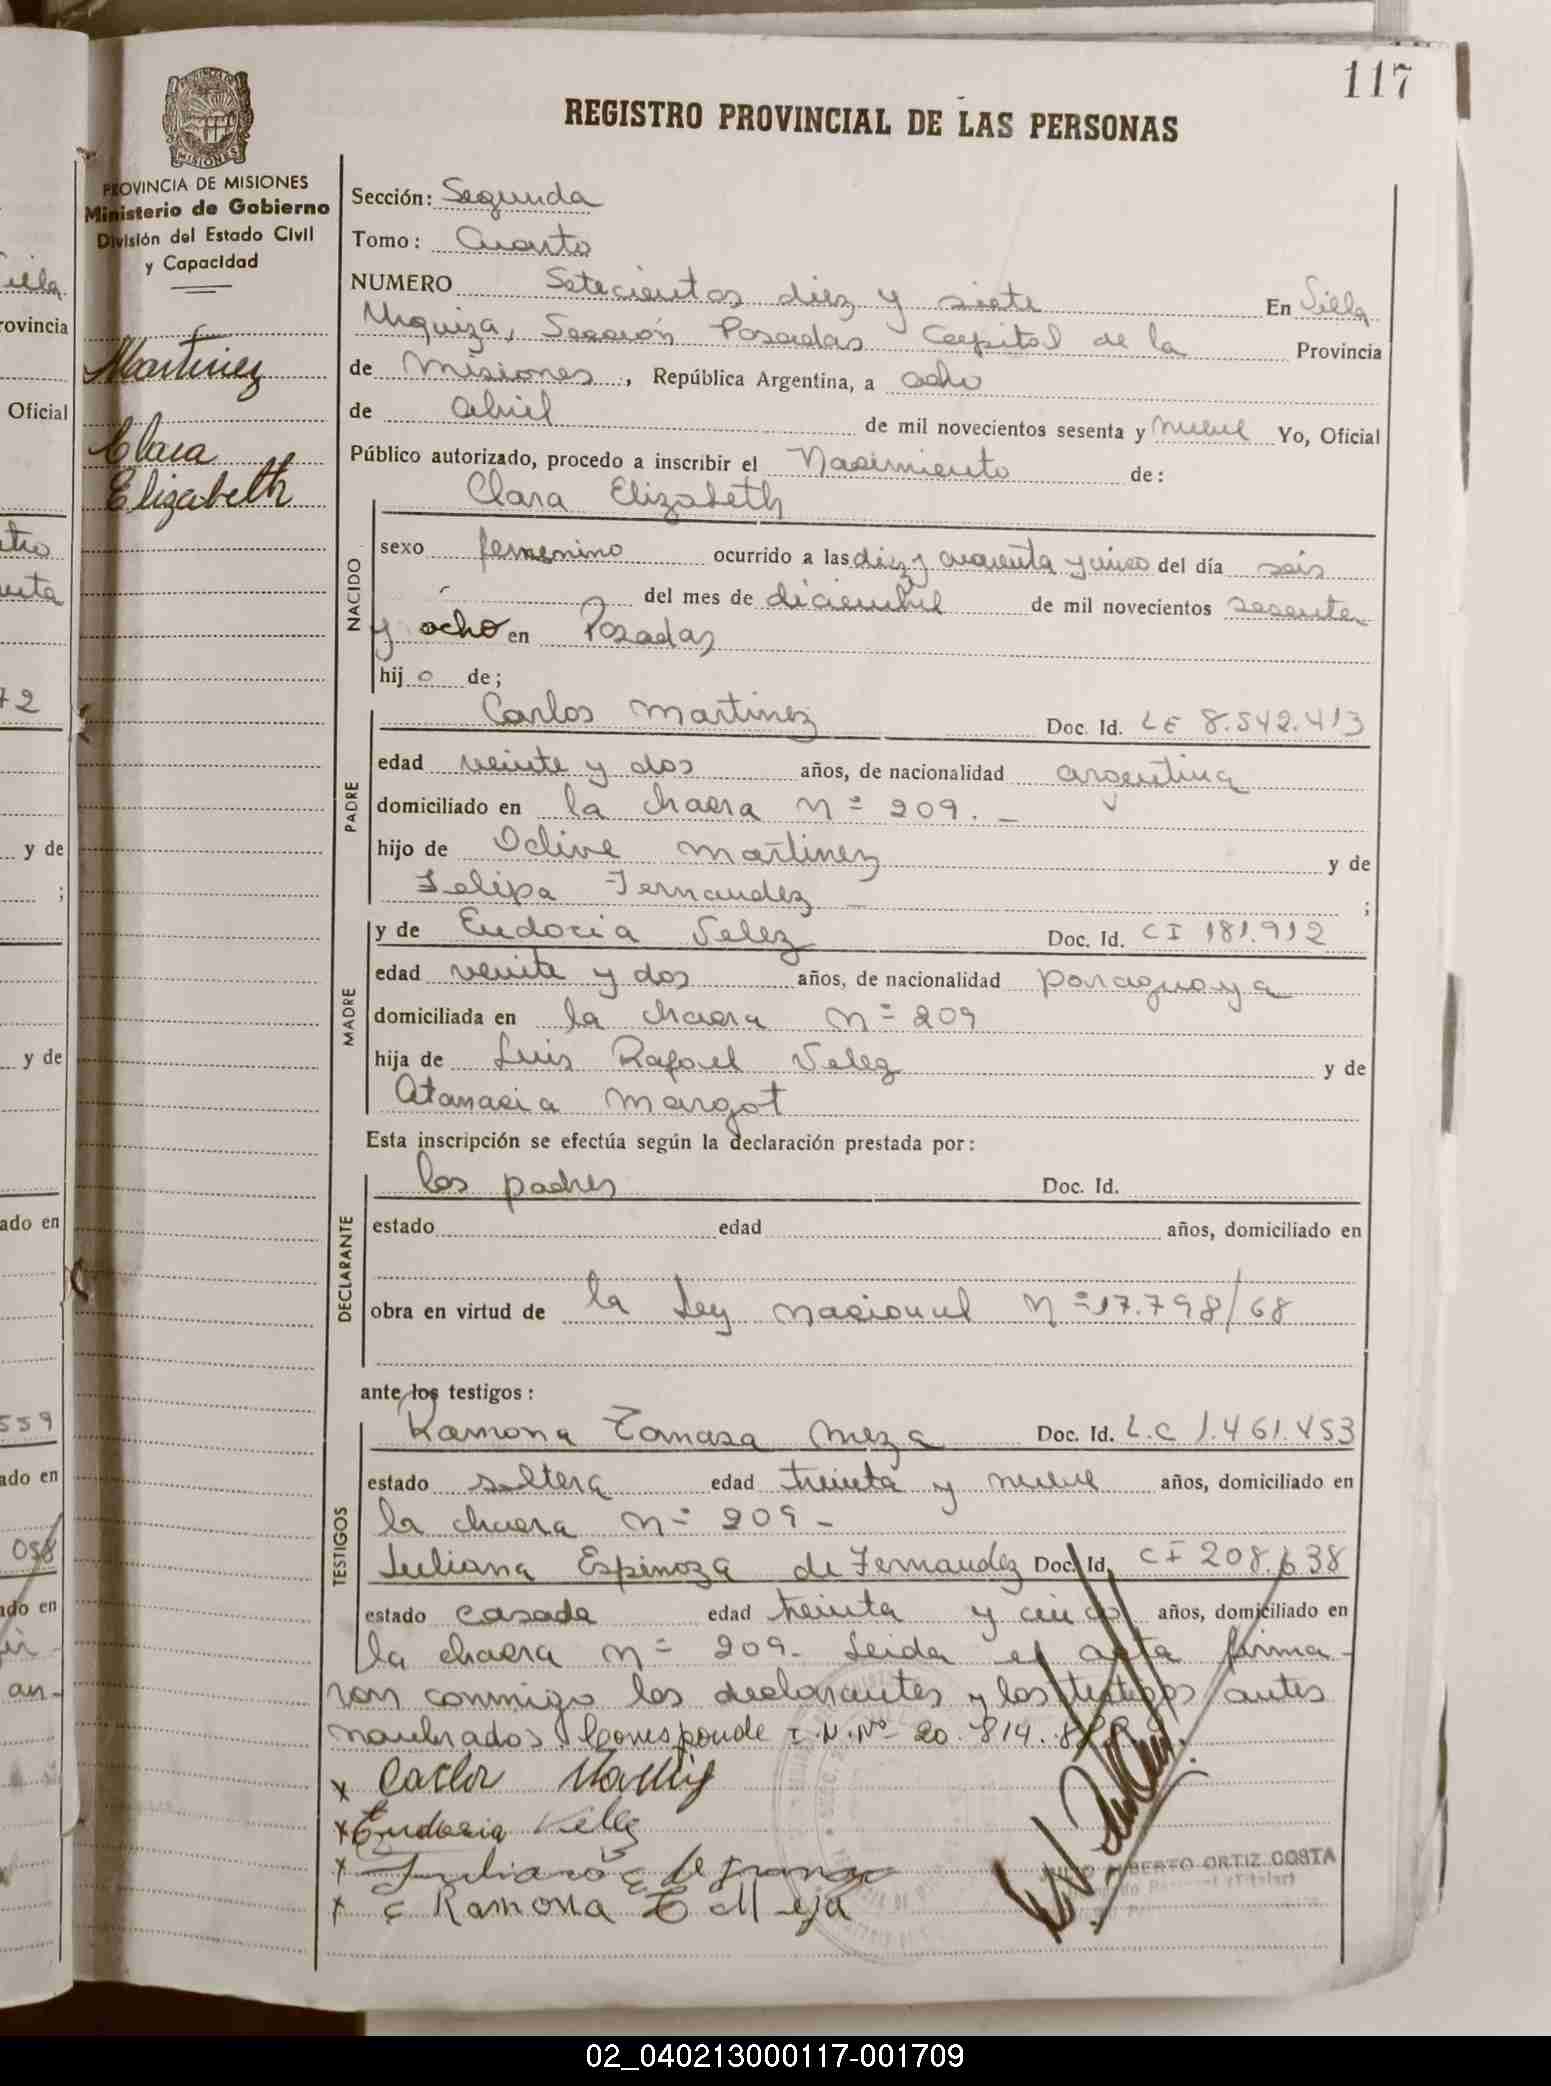 117
REGISTRO PROVINCIAL DE LAS PERSONAS
PROVINCIA DE MISIONES
Ministerio de Gobierno
División del Estado Civil
y Capacidad
Martinez
Clara
Elizabeth
Sección: Segunda
Tomo: Cuarto
NUMERO Setecientos diez y siete En Villa
Urquiza, Sección Posadas Capital de la Provincia
de Misiones, República Argentina, a ocho
de abril de mil novecientos sesenta y nueve Yo, Oficial
Público autorizado, procedo a inscribir el Nacimiento de:
Clara Elizabeth
NACIDO
sexo femenino ocurrido a las diez y cuarenta y cinco del día seis
del mes de diciembre de mil novecientos sesenta
y ocho en Posadas
hij o de;
Carlos Martinez Doc. Id. LE 8.542.413
PADRE
edad veinte y dos años, de nacionalidad argentina
domiciliado en la chacra Nº 209. –
hijo de Martinez y de
Felipa Fernandez – ;
MADRE
y de Eudocia Velez Doc. Id. CI 181.912
edad veinte y dos años, de nacionalidad paraguaya
domiciliada en la chacra Nº 209
hija de Luis Rafael Velez y de
Atanacia Margot
Esta inscripción se efectúa según la declaración prestada por:
DECLARANTE
los padres Doc. Id.
estado edad años, domiciliado en
obra en virtud de la Ley Nacional Nº 17.798/68
ante los testigos:
TESTIGOS
Ramona Tomasa Meza Doc. Id. L.C 1.461.453
estado soltera edad treinta y nueve años, domiciliado en
la chacra Nº 209 –
Juliana Espinoza de Fernandez Doc. Id. CI 208.638
estado casada edad treinta y cinco años, domiciliado en
la chacra Nº 209- Leida el acta firma-
ron conmigo los declarantes y los testigos antes
nombrados. Corresponde I.N.Nº 20.814.
x Carlos
x Eudocia Velez
x Juliana E de
x Ramona T Meja
ALBERTO ORTIZ COSTA
ovincia
Oficial
y de
;
y de
ado en
559
ado en
058
ado en
an-
02_040213000117-001709